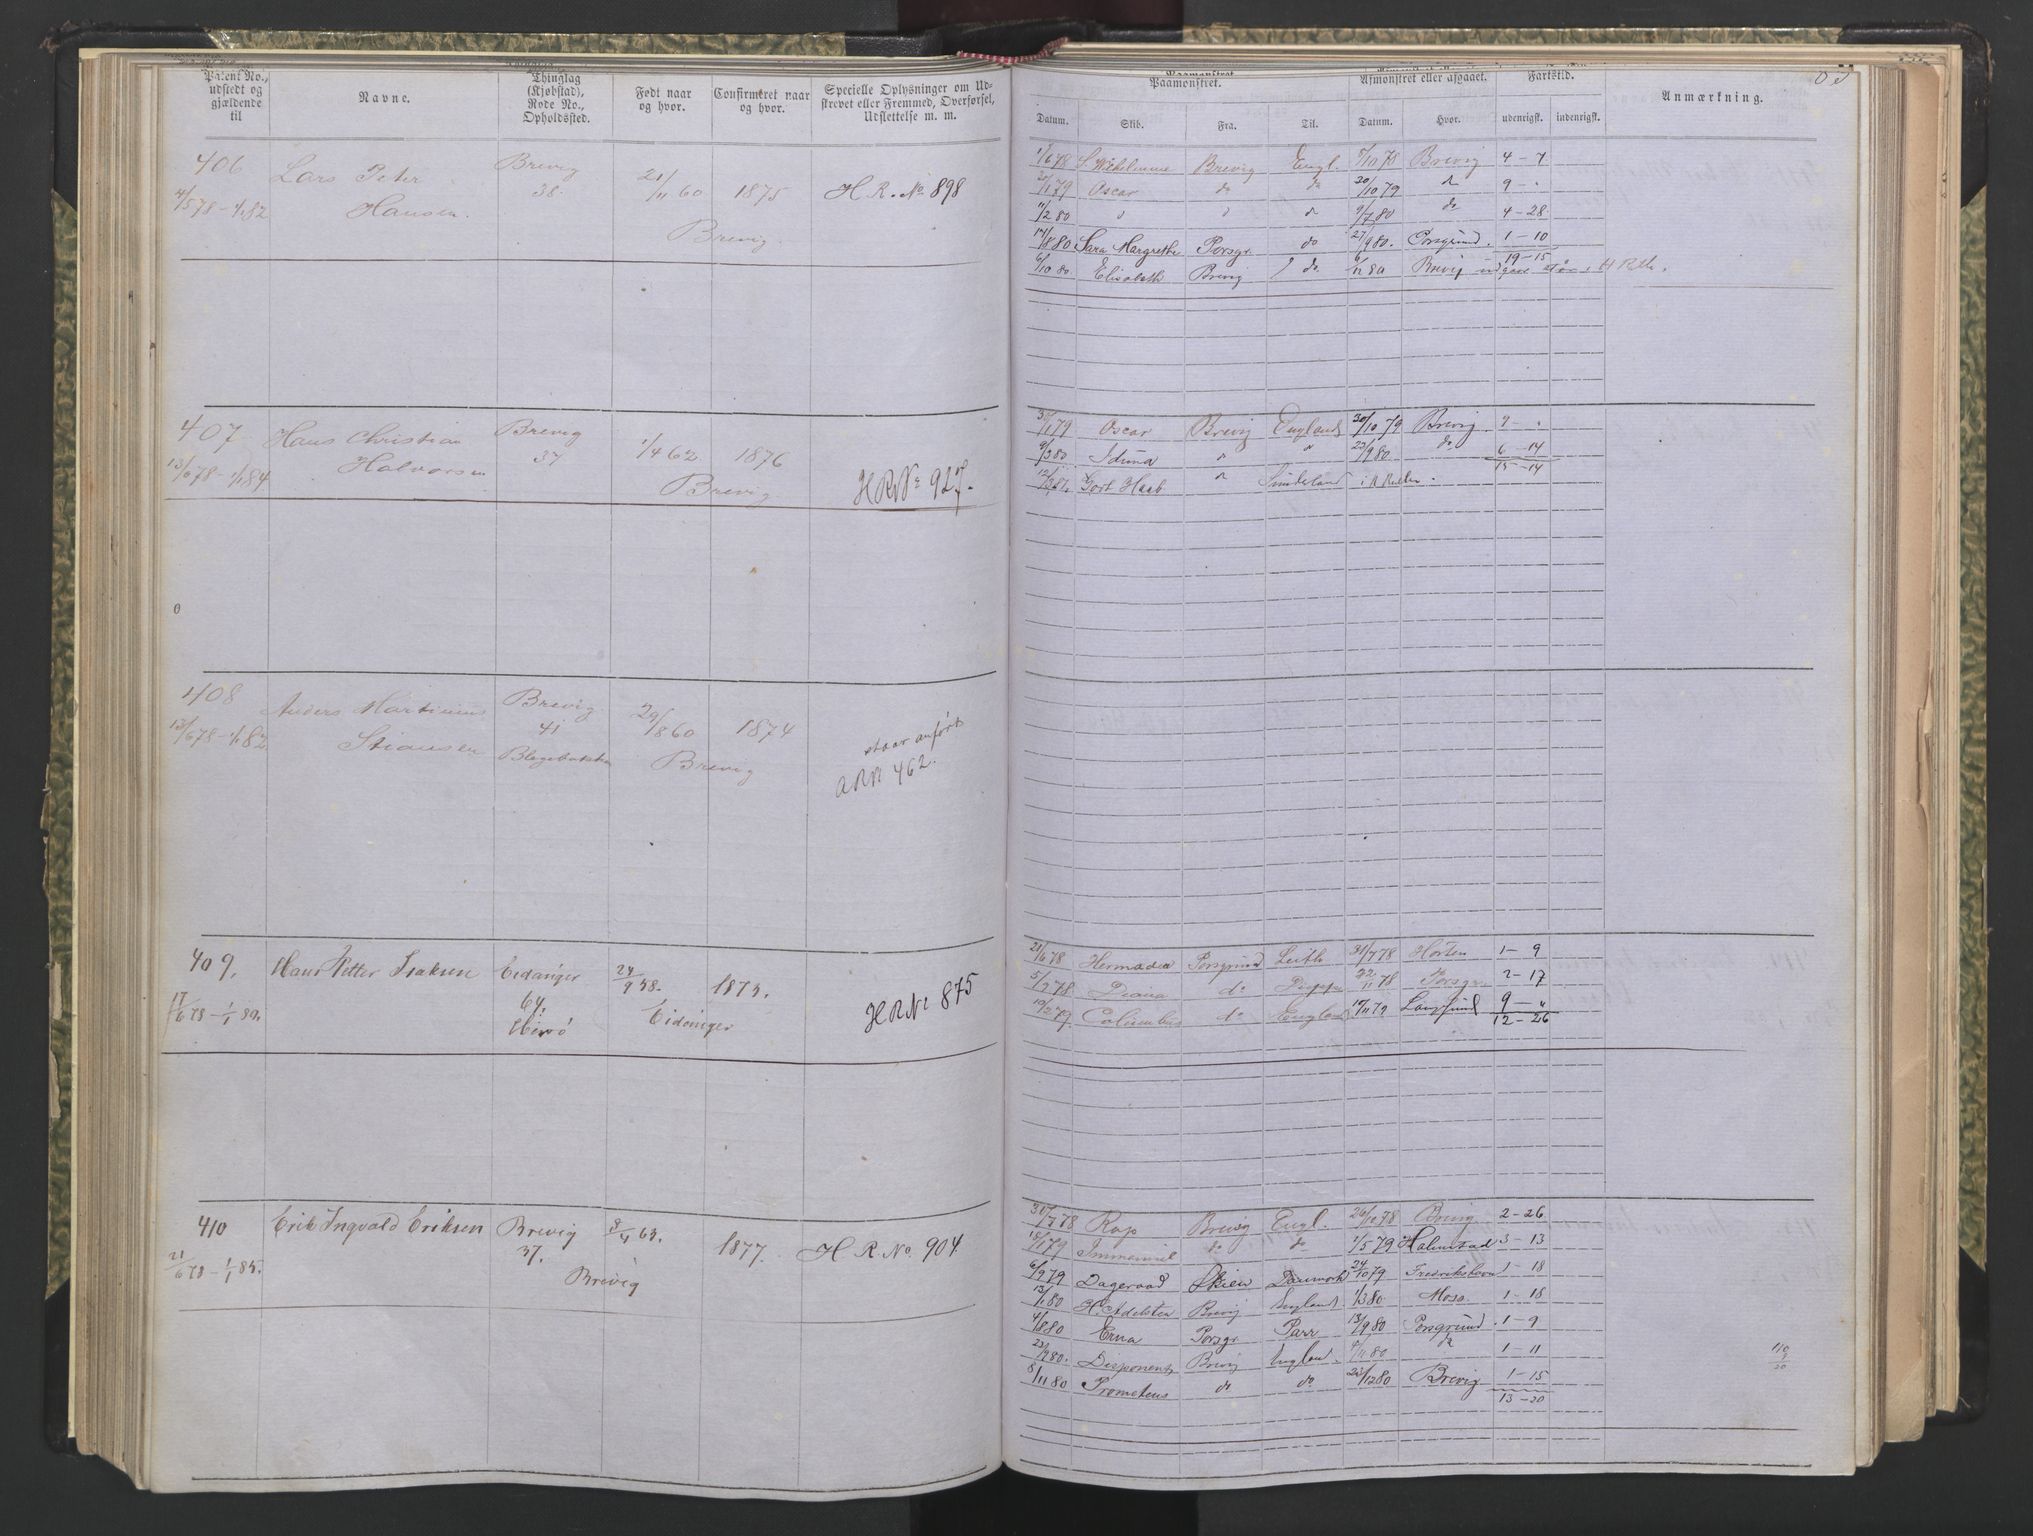 Patent No., udstedt og gjældende til
Navne.
Thinglag (Kjøbstad), Rode No., Opholdssted.
Født naar og hvor.
Confirmeret naar og hvor.
Specielle Oplysninger om Udstrevet eller Fremmed, Overførsel, Udslettelse m. m.
Paamønstret.
Afmønstret eller afgaaet.
Fartstid.
Anmærkning.
Datum. Skib. Fra. Til. Datum. Hvor. udenrigsk. indenrigsk.
406 Lars Peter Brevig 21/11 60 1875 H. R. No 898
4/5 78 - 1/1 82 Hansen. 38. Brevig.
1/6 78 Brevig Engl. 5/10 78 Brevig 4 - 7
20/1 79 Oscar do do 30/10 79 do 9 - "
11/2 80 " " " 9/7 80 do 4 - 28
14/8 80 Sara Margrethe Porsgr. do 27/9 80. Porsgrund. 1 - 10
19 - 15
6/10 80 Elisabeth Brevig do Brevig
407 Hans Christian Brevig 1/4 62 1876
13/6 78 - 1/1 84 Halvorsen 37 Brevig H R No 927.
30/1 79 Oscar Brevig England 30/10 79 Brevig 9 - "
9/3 80 Iduna " " 23/9 80 do 6 - 14
15 - 14
Godt Haab " Sunderland
408 Anders Martinius Brevig 29/8 60 1874
13/6 78 - 1/1 82 Stiansen 41 Brevig staar anført
A R N 462.
409. Hans Petter Isaksen Eidanger 24/9 58. 1873. H R No 875
17/6 78 - 1/1 80. 64. Eidanger
21/6 78 Porsgrund Leith 31/7 78 Horten 1 - 9
5/9 78 Diana do 22/11 78 Porsgr. 2 - 17
10/2 79 Columbus do England 10/11 79 Langesund 9 - "
12 - 26
410 Erik Ingvald Eriksen Brevig 3/4 63. 1877. H R. No. 904
21/6 78 - 1/1 85. 37. Brevig
30/7 78 Rap Brevig Engl. 26/10 78 Brevig 2 - 26
18/1 79 Immanuel do do 1/5 79 Halmstad 3 - 13
6/9 79 Dageraad Skien Danmark 24/10 79 Fredrikshavn 1 - 18
13/1 80 H. Adelsten Brevig England. 1/3 80 Moss. 1 - 18
4/8 80 Erna Porsgr. Parr 13/9 80 Porsgrund. 1 - 9
23/9 80. Disponent Brevig England. 4/11 80 do 1 - 11
8/11 80 Prometeus do do 23/12 80 Brevig 1 - 15
13 - 20